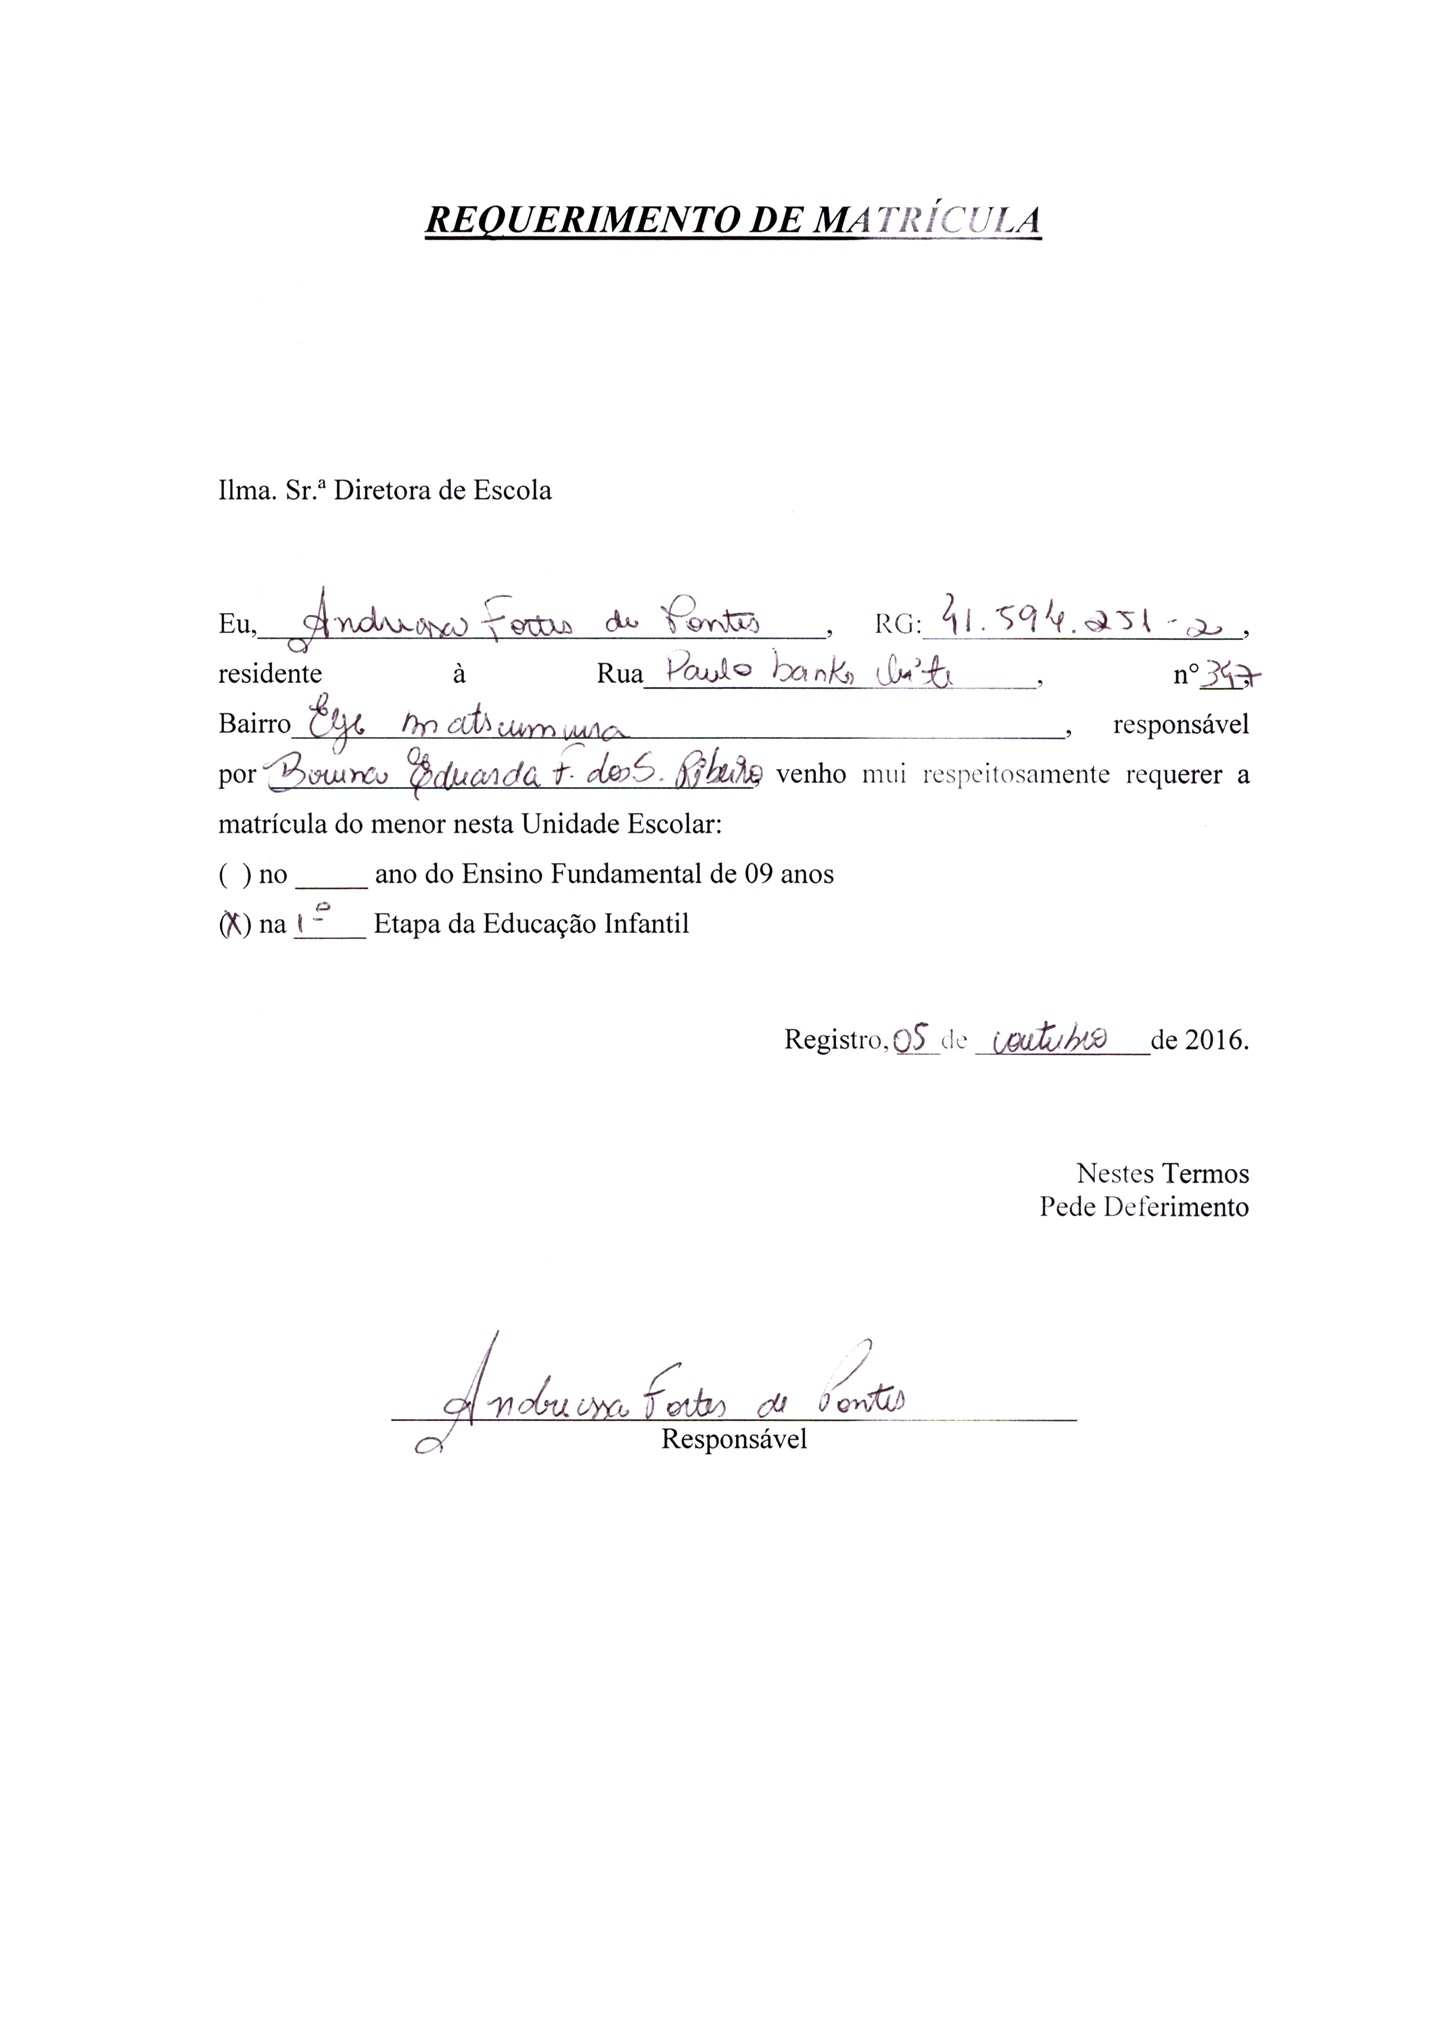 REQUERIMENTO DE MATRÍCULA
Ilma. Sr.ª Diretora de Escola
Eu, Andressa Fortes de Pontes, RG: 41.594.251-2,
residente à Rua Paulo banks, nº 347,
Bairro Eye matsumura, responsável
por Eduarda F. dos S. Ribeiro, venho mui respeitosamente requerer a
matrícula do menor nesta Unidade Escolar:
( ) no _____ ano do Ensino Fundamental de 09 anos
(X) na 1º Etapa da Educação Infantil
Registro, 05 de outubro de 2016.
Nestes Termos
Pede Deferimento
Andressa Fortes de Pontes
Responsável